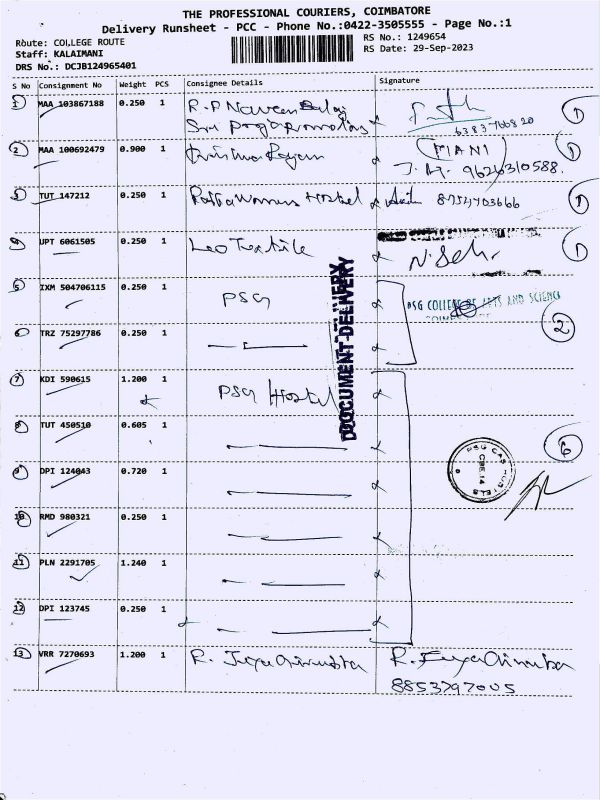 THE PROFESSIONAL COURIERS, COIMBATORE
Delivery Runsheet - PCC - Phone No.:0422-3505555 - Page No.:1
Route: COLLEGE ROUTE
Staff: KALAIMANI
DRS No.: DCJB124965401
RS No.: 1249654
RS Date: 29-Sep-2023
S No Consignment No Weight PCS Consignee Details Signature
1 MAA 103867188 0.250 1 R.P Naveen Balaji
Sri
6383766820
1
2 MAA 100692479 0.900 1
MANI
9626310588.
1
3 TUT 147212 0.250 1 Womens Hostel 8754703666
1
4 UPT 6061505 0.250 1 Leo Textile
1
5 IXM 504706115 0.250 1 PSG
PSG COLLEGE OF ARTS AND SCIENCE
6 TRZ 75297786 0.250 1
2
DOCUMENT-DELIVERY
7 KDI 590615 1.200 1 PSG Hostel
8 TUT 450510 0.605 1
6
9 DPI 124043 0.720 1
PSG CAS HOSTELS
CBE.14
10 RMD 980321 0.250 1
11 PLN 2291705 1.240 1
12 DPI 123745 0.250 1
13 VRR 7270693 1.200 1 R.
R.
8853797005